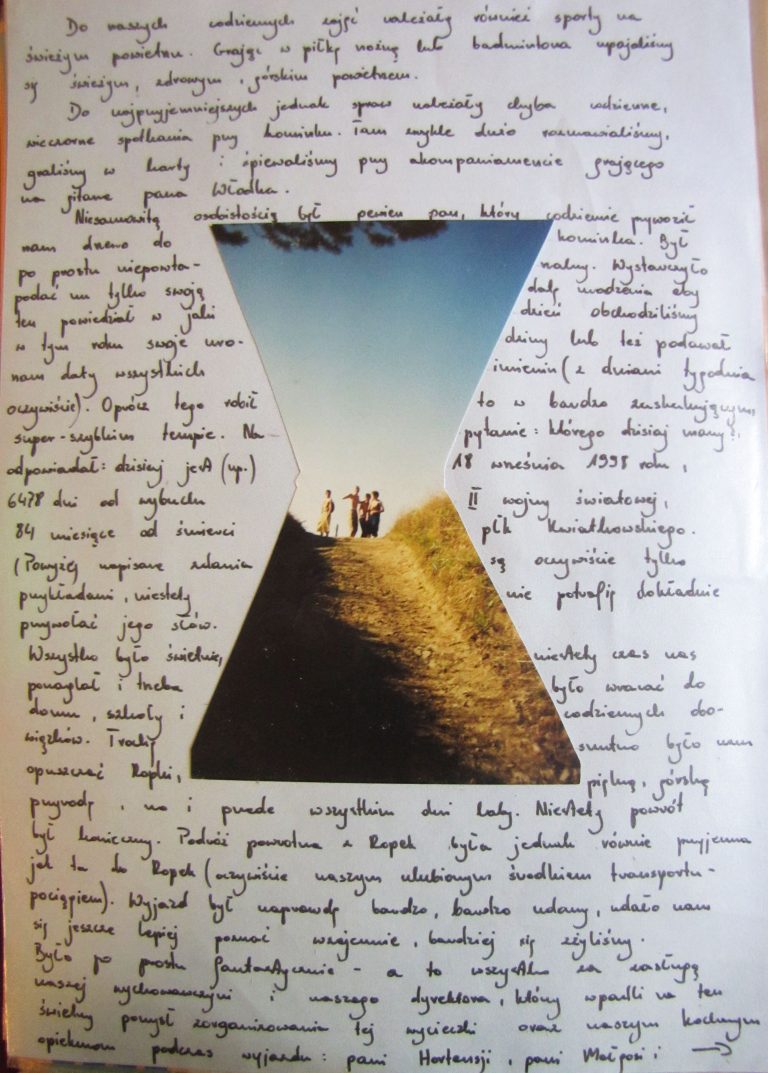 Do naszych codziennych zajęć należały również sporty na
świeżym powietrzu. Grając w piłkę nożną lub badmintona upajaliśmy
się świeżym, zdrowym, górskim powietrzem.
Do najprzyjemniejszych jednak spraw należały chyba codzienne,
wieczorne spotkania przy kominku. Tam zwykle dużo rozmawialiśmy,
graliśmy w karty i śpiewaliśmy przy akompaniamencie grającego
na gitarze pana Władka.
Niesamowitą osobistością był pewien pan, który codziennie przywoził
nam drewno do kominka. Był
po prostu niepowta- rzalny. Wystarczyło
podać mu tylko swoją datę urodzenia aby
ten powiedział w jaki dzień obchodziliśmy
w tym roku swoje uro- dziny lub też podawał
nam daty wszystkich imienin (z dniami tygodnia
oczywiście). Oprócz tego robił to w bardzo zaskakującym,
super-szybkim tempie. Na pytanie: którego dzisiaj mamy?,
odpowiadał: dzisiaj jest (np.) 18 września 1998 roku,
6478 dni od wybuchu II wojny światowej,
84 miesiące od śmierci płk Kwiatkowskiego.
(Powyżej napisane zdania są oczywiście tylko
przykładami, niestety nie potrafię dokładnie
przywołać jego słów.
Wszystko było świetnie, niestety czas nas
ponaglał i trzeba było wracać do
domu, szkoły i codziennych obo-
wiązków. Trochę smutno było nam
opuszczać Ropki, piękną, górską
przyrodę, no i przede wszystkim dni laby. Niestety powrót
był konieczny. Podróż powrotna z Ropek była jednak równie przyjemna
jak ta do Ropek (oczywiście naszym ulubionym środkiem transportu-
pociągiem). Wyjazd był naprawdę bardzo, bardzo udany, udało nam
się jeszcze lepiej poznać wzajemnie, bardziej się zżyliśmy.
Było po prostu fantastycznie - a to wszystko za zasługą
naszej wychowawczyni i naszego dyrektora, który wpadli na ten
świetny pomysł zorganizowania tej wycieczki oraz naszym kochanym
opiekunom podczas wyjazdu: pani Hortensji, pani Małgosi i →